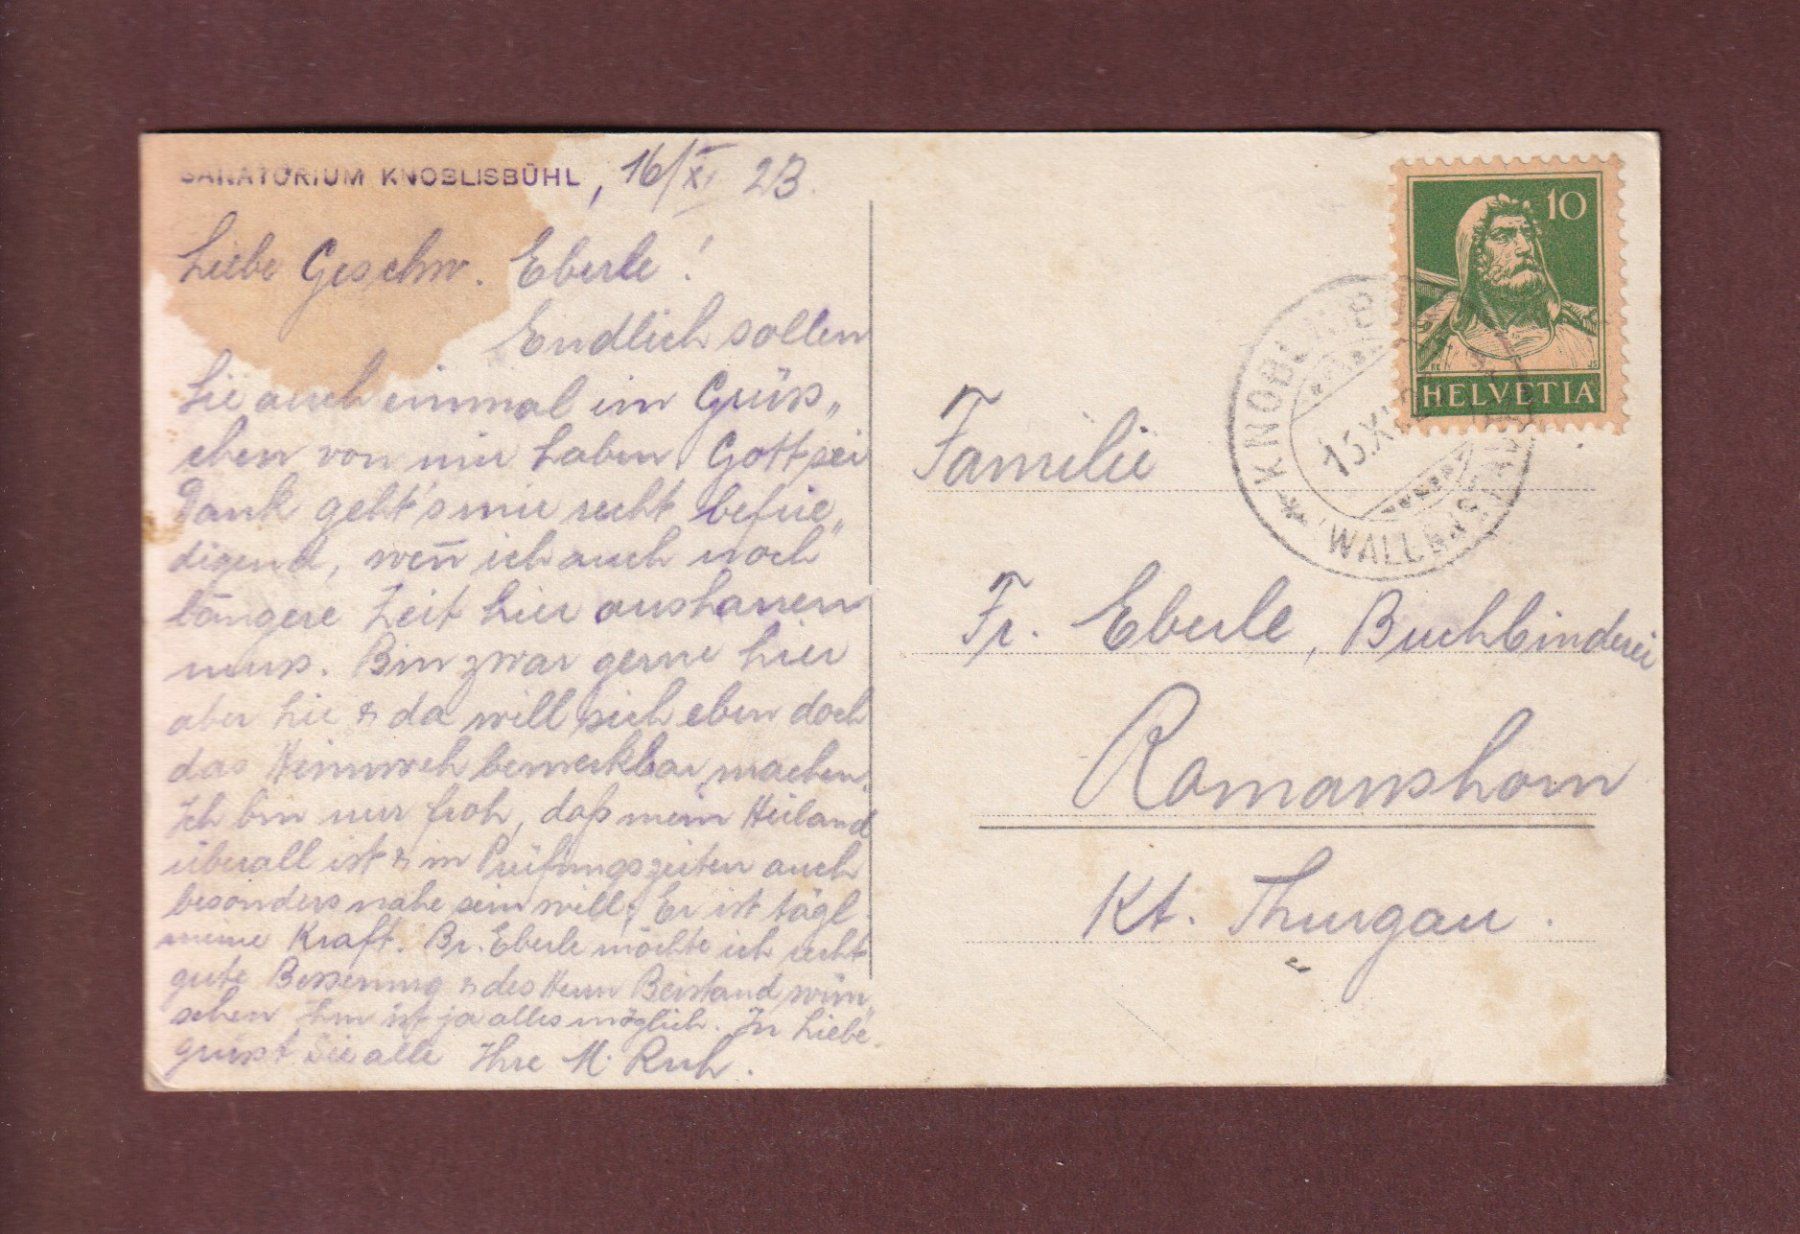 SANATORIUM KNOBLISBÜHL, 16/XI 23.
Liebe Geschw. Eberle!
Endlich sollen
Sie auch einmal ein Grüss„
chen von mir haben. Gott sei
Dank geht's mir recht befrie„
digend, wen̄ ich auch noch
längere Zeit hier ausharren
muss. Bin zwar gerne hier
aber hie & da will sich eben doch
das Heimweh bemerkbar machen.
Ich bin nur froh, daß mein Heiland
überall ist & in Prüfungszeiten auch
besonders nahe sein will; Er ist tägl.
meine Kraft. Br. Eberle möchte ich recht
gute Besserung & des Herrn Beistand wün„
schen Ihm ist ja alles möglich. In Liebe
grüsst Sie alle Ihre M. Ruh.
10
HELVETIA
* KNOBLISBÜHL *
15.XI.
(WALLENSTADT)
Familie
Fr. Eberle, Buchbinderei
Romanshorn
Kt. Thurgau.